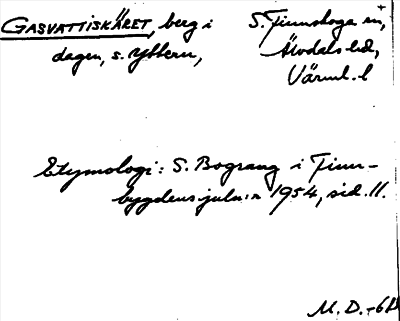 GASVATTISKÄRET, berg i S. Finnskoga sn,
dagen, s. Yttern, Älvdals hd,
Värml. l
Etymologi: S. Bograng i Finn-
bygdens julnr 1954, sid. 11.
M. D. -61